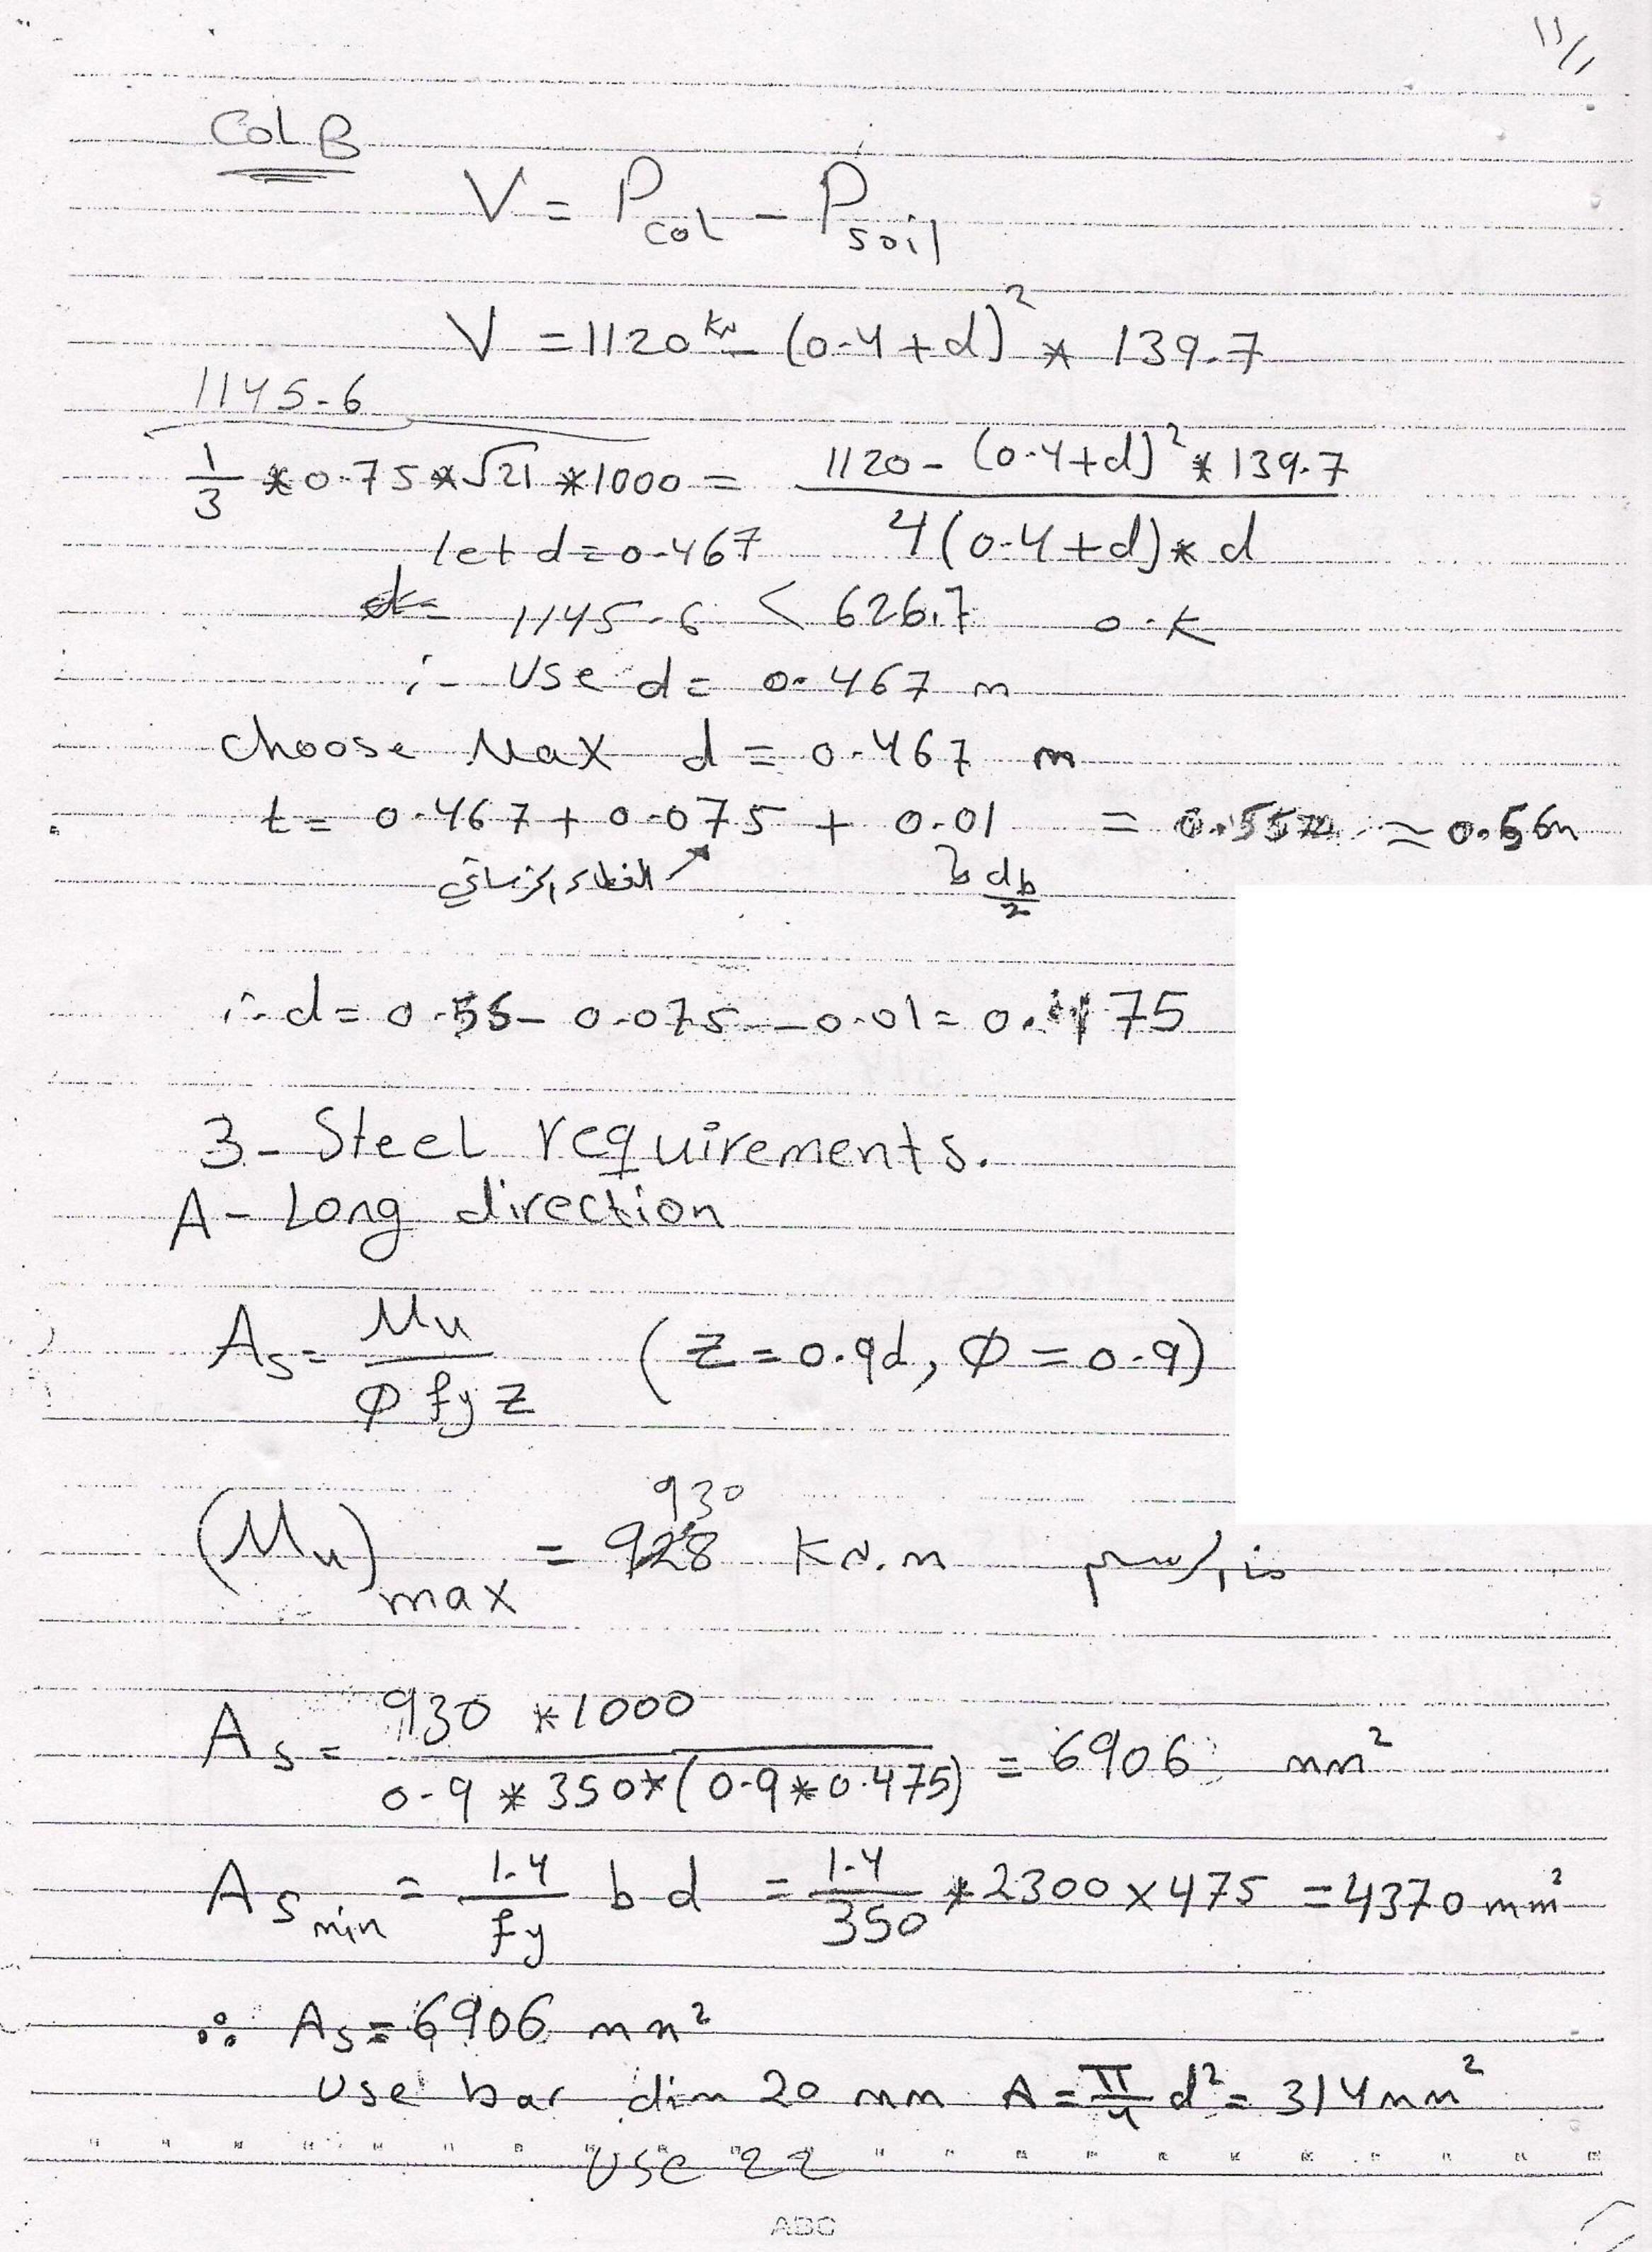 11/1
Col B
V = P_col - P_soil
V = 1120 kN - (0.4+d)² * 139.7
1145.6
1/3 * 0.75 * √21 * 1000 = (1120 - (0.4+d)² * 139.7) / (4(0.4+d) * d)
let d = 0.467
1145.6 < 626.7 o.k
∴ Use d = 0.467 m
choose Max d = 0.467 m
t = 0.467 + 0.075 + 0.01 = 0.552 ≈ 0.56m
الغطاء الخرساني db/2
∴ d = 0.56 - 0.075 - 0.01 = 0.475
3- Steel requirements.
A- Long direction
As = Mu / (Φ fy z) (z = 0.9d, Φ = 0.9)
930
(Mu)max = 928 KN.m
As = 930 * 1000 / (0.9 * 350 * (0.9 * 0.475)) = 6906 mm²
As min = 1.4/fy b d = 1.4/350 * 2300 × 475 = 4370 mm²
∴ As = 6906 mm²
Use bar dim 20 mm A = π/4 d² = 314 mm²
Use 22
ABC